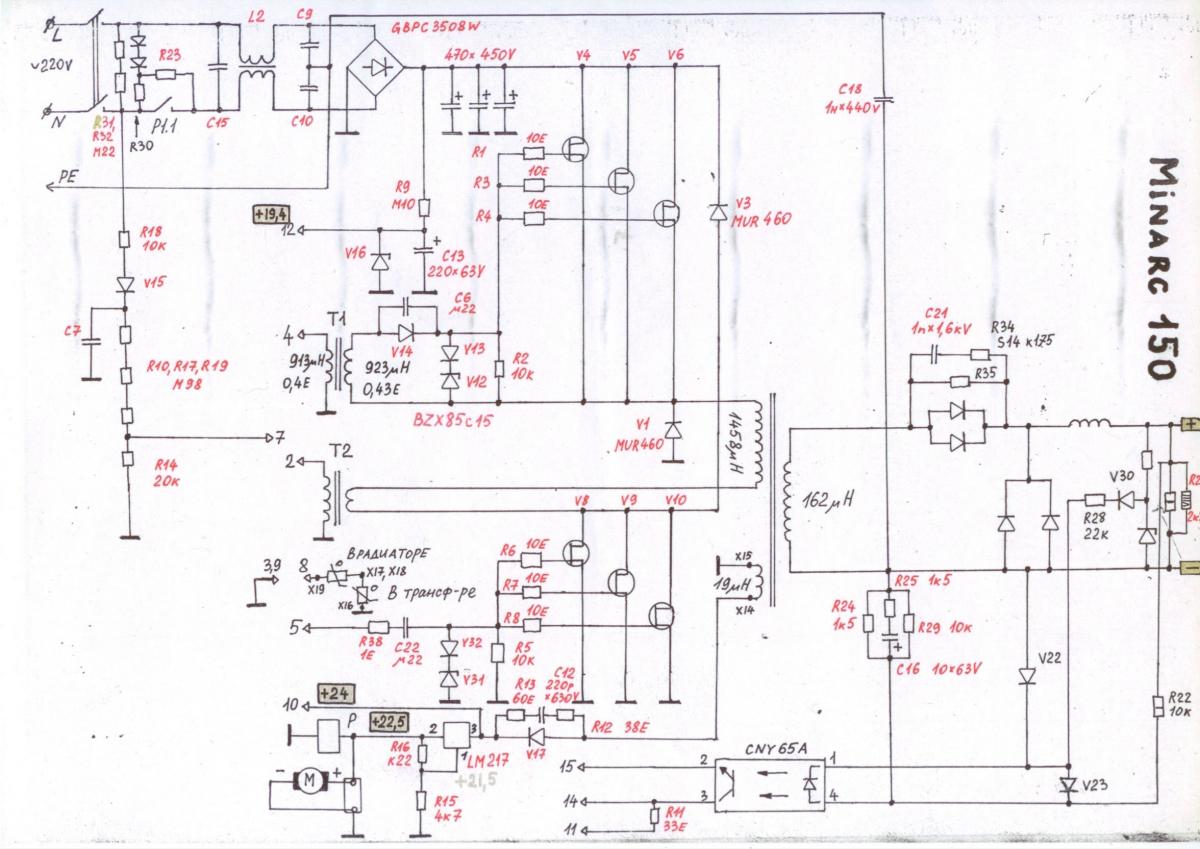 L
~220V
N
R31,
R32
M22
R30
P1.1
R23
C15
L2
C9
C10
GBPC3508W
470×450V
V4
V5
V6
C18
1н×440V
PE
R1
10E
R3
10E
R4
10E
R9
M10
+19,4
12
V16
C13
220×63V
V3
MUR 460
R18
10K
V15
C7
R10, R17, R19
M98
7
R14
20K
4
T1
913μH
0,4E
923μH
0,43E
C6
μ22
V14
V13
V12
R2
10K
BZX85c15
V1
MUR460
1458μH
2
T2
V8
V9
V10
162μH
C21
1n×1,6kV
R34
S14 K175
R35
MINARC 150
+
V30
R28
22K
-
3,9
8
X19
В РАДИАТОРЕ
X17, X18
X16
В ТРАНСФ-РЕ
R6
10E
R7
10E
R8
10E
5
R38
1E
C22
μ22
V32
V31
R5
10K
X15
19μH
X14
R25 1K5
R24
1K5
R29 10K
C16 10×63V
V22
R22
10K
+24
10
P
+22,5
R16
K22
2
3
1
LM217
+21,5
R13
60E
C12
220p
×630V
R12 38E
V17
M
-
+
R15
4K7
CNY65A
15
2
1
14
3
4
11
R11
33E
V23